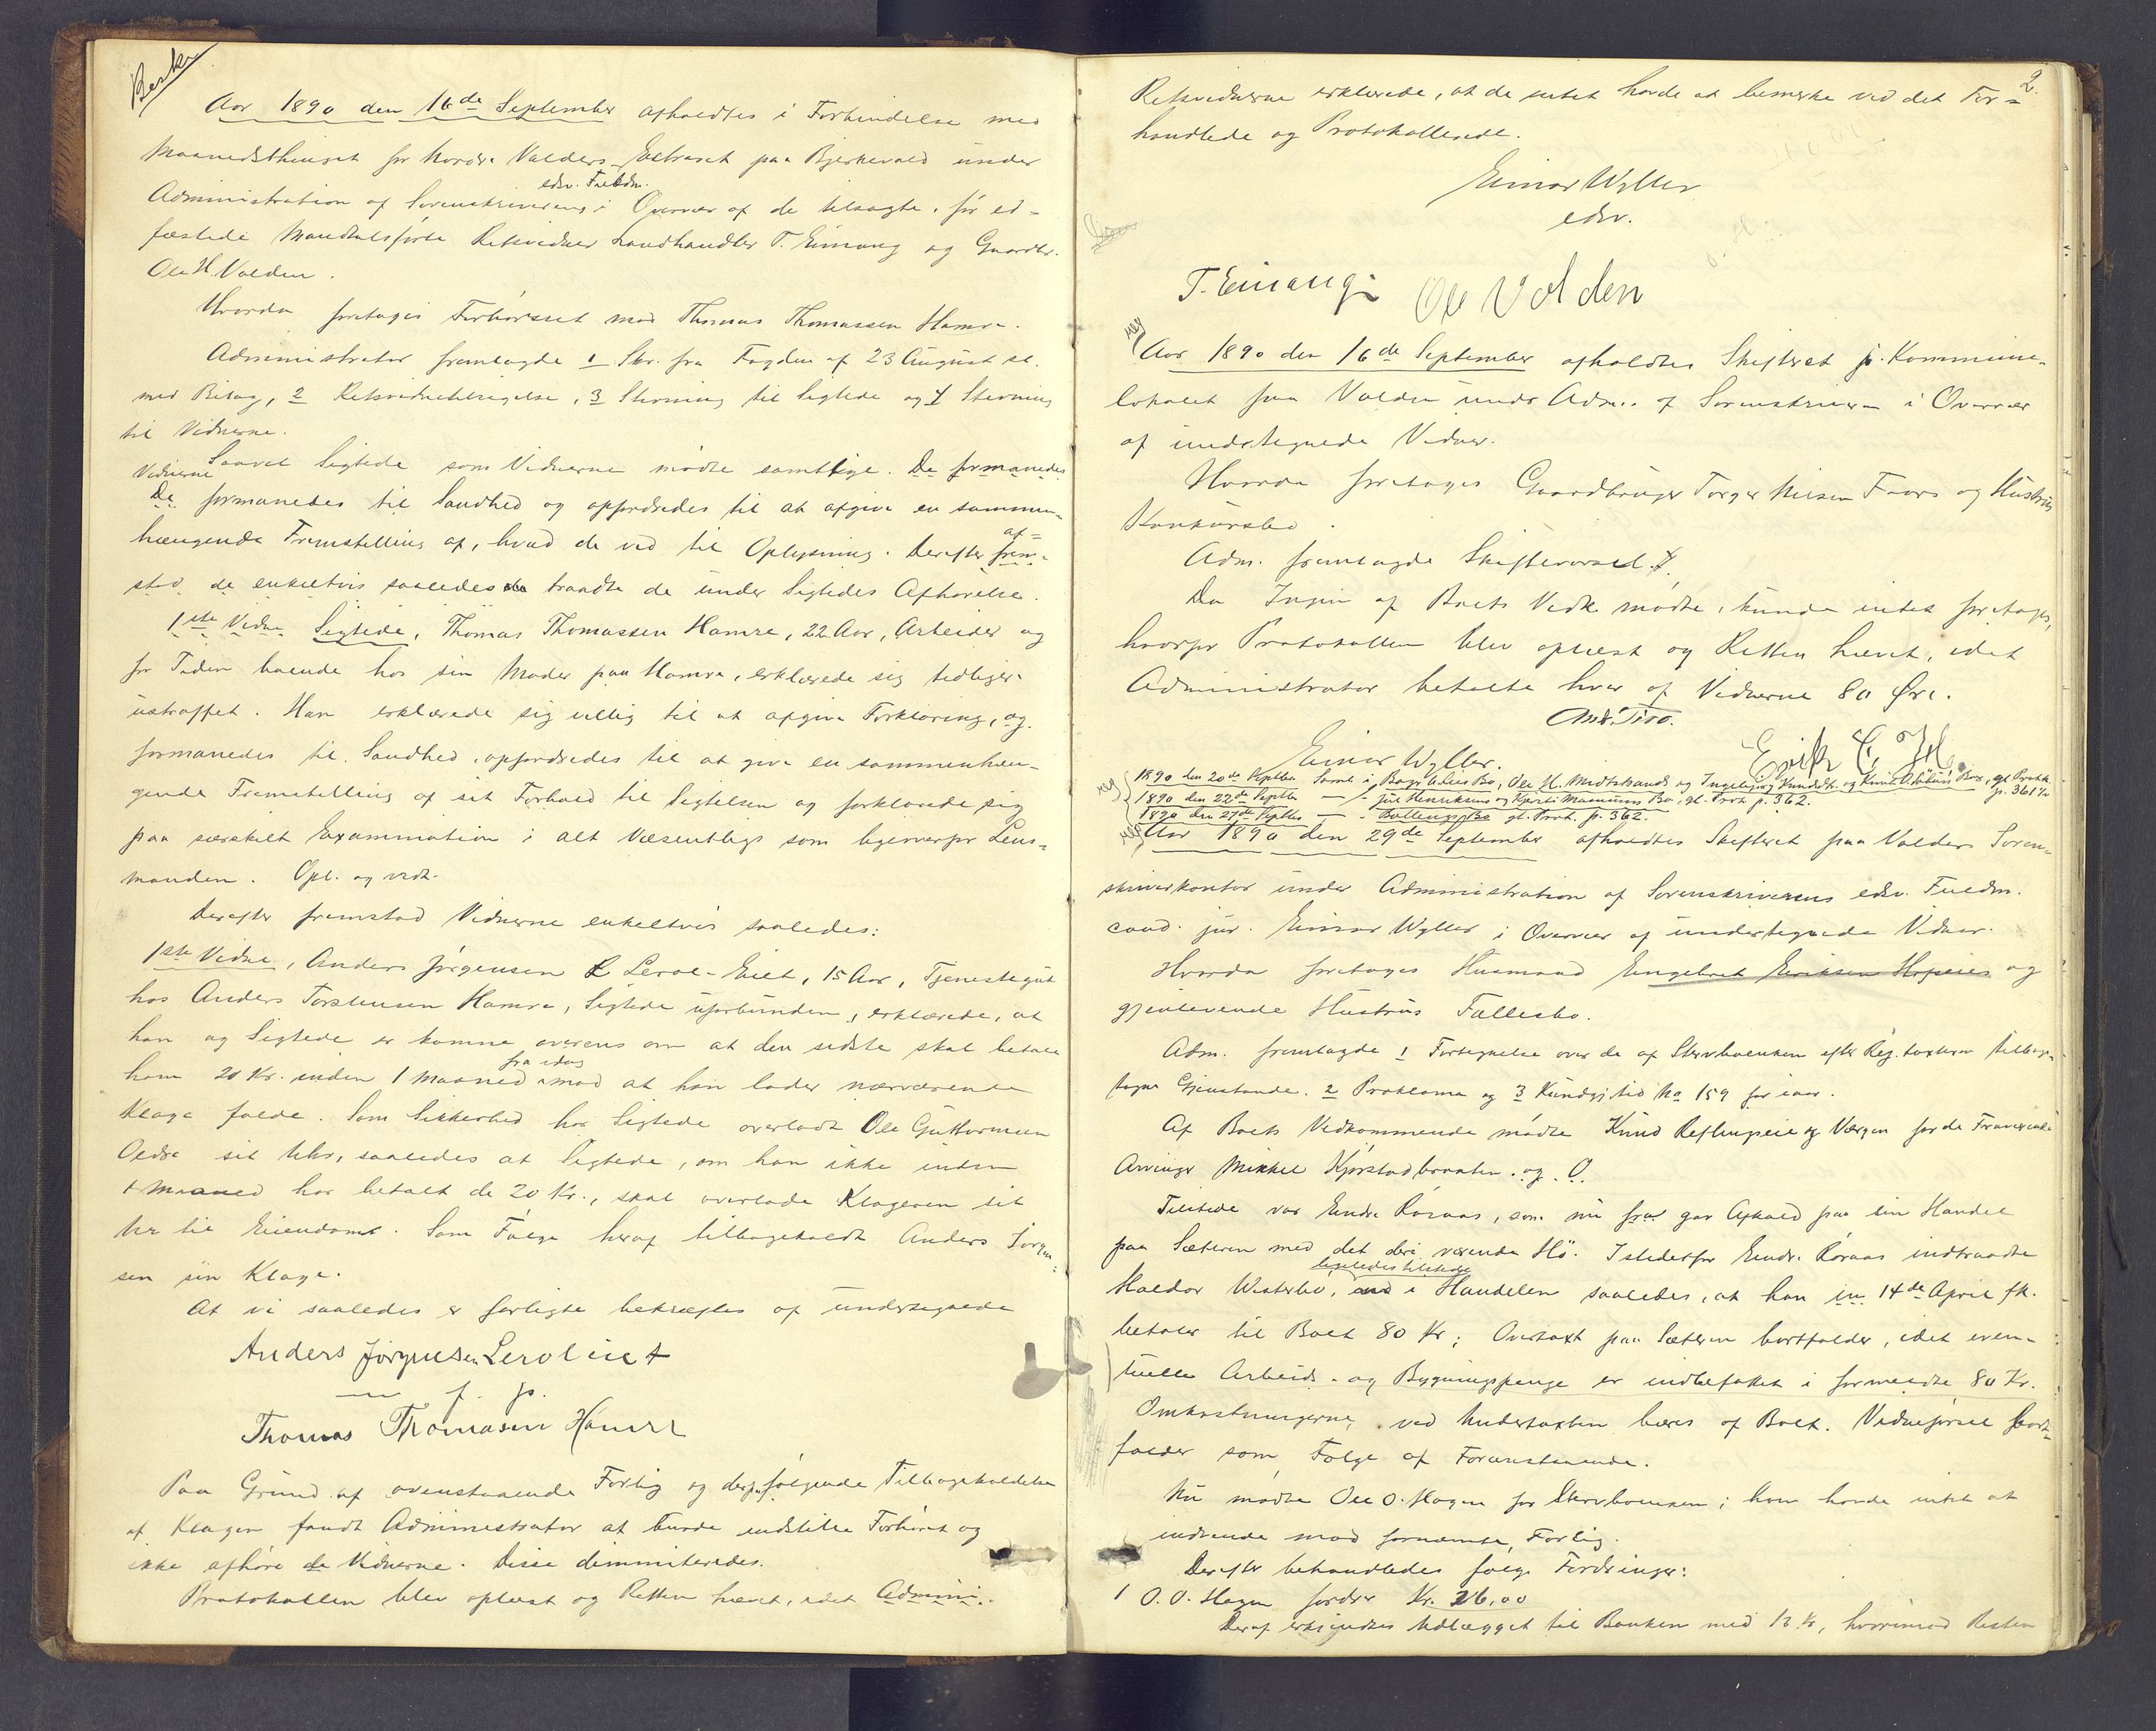 Beskr
Aar 1890 den 16de September afholdtes i Forbindelse med
Maanedsthinget for Nordre Valders Extraret paa Bjerkevold under
edsv. Fuldm.
Administration af Sorenskriverens i Overvær af de tilsagte, før ed-
fæstede Mandtalsførte Retsvidner Landhandler T. Einang og Gaardbr.
Ole H. Volden.
Hvorda foretages Forhørsret mod Thomas Thomassen Hamre.
Administrator fremlagde 1 Skr. fra Fogden af 23 August sl.
med Bilag, 2 Retsvidnetilsigelse, 3 Stevning til Sigtede og 4 Stevning
til Vidnerne.
Saavel Sigtede som Vidnerne mødte samtlige. De formanedes
Vidnerne
De formanedes til Sandhed og opfordredes til at afgive en sammen-
hængende Fremstilling af, hvad de ved til Oplysning. Derefter frem-
af-
stod de enkeltvis saaledes traadte de under Sigtedes Afhørelse.
1ste Vidne Sigtede, Thomas Thomassen Hamre, 22 Aar, Arbeider og
for Tiden boende hos sin Moder paa Hamre, erklærede sig tidligere
ustraffet. Han erklærede sig villig til at afgive Forklaring, og
formanedes til Sandhed, opfordredes til at give en sammenhæn-
gende Fremstilling af sit Forhold til Sigtelsen og forklarede sig
paa særskilt Examination i alt Væsentligt som ligeoverfor Lens-
manden. Opl. og vedt.
Derefter fremstod Vidnerne enkeltvis saaledes:
1ste Vidne, Anders Jørgensen Lerol-Eiet, 15 Aar, Tjenestegut
hos Anders Torstensen Hamre, Sigtede uforbunden, erklærede, at
han og Sigtede er komne overens om at den sidste skal betale
fra idag
ham 20 Kr. inden 1 Maaned imod at han lader nærværende
Klage falde. Som Sikkerhed har Sigtede overladt Ole Guttormsen
Oedre sit Uhr, saaledes at Sigtede, om han ikke inden
1 Maaned har betalt de 20 Kr., skal overlade Klageren sit
Uhr til Eiendom. Som Følge heraf tilbagekaldte Anders Jørgen-
sen sin Klage.
At vi saaledes er forligte bekræftes af undertegnede
Anders Jørgensen Lerol eiet
m f. p.
Thomas Thomasen Hamre
Paa Grund af ovenstaaende Forlig og deraf følgende Tilbagekaldelse
af Klagen fandt Administrator at burde indstille Forhøret og
ikke afhøre de Vidnerne. Disse dimmiteredes.
Protokollen blev oplæst og Retten hævet, idet Admini-
2.
Retsvidnerne erklærede, at de intet havde at bemerke ved det For-
handlede og Protokollerede.
Einar Wyller
edsv.
T. Einang Ole Volden
reg
Aar 1890 den 16de September afholdtes Skifteret i Kommune-
lokalet paa Volden under Adm. af Sorenskriveren i Overvær
af undertegnede Vidner.
Hvorda foretages Gaardbruger Torger Nilsen Fauss og Hustrus
Konkursbo.
Adm. fremlagde Skiftevarsel
Da Ingen af Boets Vedk. mødte, kunde intet foretages,
hvorfor Protokollen blev oplæst og Retten hævet, idet
Administrator betalte hver af Vidnerne 80 Øre.
Einar Wyller. Erik
reg
1890 den 20de Septbr Samling i Boger Olies Bo, Ole H. Midtstrands og Ingebjørg Knudsdtr. og Knud Bo, gl. Protok.
p. 361
1890 den 22de Septbr — Jul Henriksens og Kjersti Bo, gl. Prot. p. 362.
1890 den 27de Septbr — Bo gl. Prot. p. 362.
reg
Aar 1890 den 29de September afholdtes Skifteret paa Valders Soren-
skriverkontor under Administration af Sorenskriverens edsv. Fuldm.
cand. jur. Einar Wyller i Overvær af undertegnede Vidner.
Hvorda foretages Husmand Engebret Eriksen og
gjenlevende Hustrus Fællesbo.
Adm. fremlagde 1 Fortegnelse over de af Stervboenken efter Reg.taxten tilbage-
tagne Gjenstande. 2 Proklama og 3 Kundgj.tid. No 159 for iaar.
Af Boets Vedkommende mødte Knud og Værgen for de Fraværende
Arvinger Mikkel Kjørstadbraaten. og O.
Tilstede var Endre Røraas, som nu gav Afkald paa sin Handel
paa Sæteren med det deri værende Hø. Istedetfor Endre Røraas indtraadte
ligeledes tilstede
Haldor Westerbø, i Handelen saaledes, at han 14de April fk.
betaler til Boet 80 Kr; Overtaxt paa Sæteren bortfalder, idet even-
tuelle Arbeids- og Bygningspenge er indbefattet i formeldte 80 Kr.
Omkostningerne ved Undertaxten bæres af Boet. Vidneførsel bort-
falder som Følge af Foranstaaende.
Nu mødte Ole O. Hagen for Stervboenken; han havde intet at
indvende mod fornævnte Forlig.
Derefter behandledes følg. Fordringer:
1 O. O. Hagen fordrer Kr. 26,00
Deraf erkjendtes Udlægget til Banken med 12 Kr, hvorimod Resten